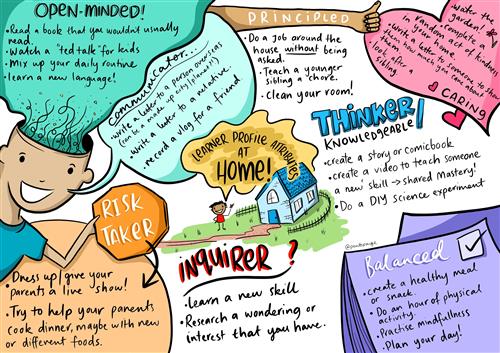 OPEN-MINDED!
•Read a book that you wouldn't usually
read.
•Watch a 'ted talk' for kids
•Mix up your daily routine
•learn a new language!
Communicator...
•write a letter to a person overseas
(can be a made up city/planet!!)
•write a letter to a relative
•record a vlog for a friend
PRINCIPLED
•Do a job around the
house without being
asked.
•Teach a younger
sibling a chore.
•Clean your room!
•water the
garden
•Complete a
random act of kindness
•Write a letter to someone to show
them how much you care about them
•look after a
sibling.
CARING
THINKER/
KNOWLEDGEABLE
•create a story or comicbook
•create a video to teach someone
a new skill → shared Mastery!
•Do a DIY Science experiment
LEARNER PROFILE ATTRIBUTES
AT
HOME!
RISK
TAKER
•Dress up/give your
parents a live 'show!
•Try to help your parents
cook dinner, maybe with new
or different foods.
INQUIRER?
•Learn a new skill
•Research a wondering or
interest that you have.
Balanced
•create a healthy meal
or snack.
•Do an hour of physical
activity.
•Practise mindfulness
•Plan your day!